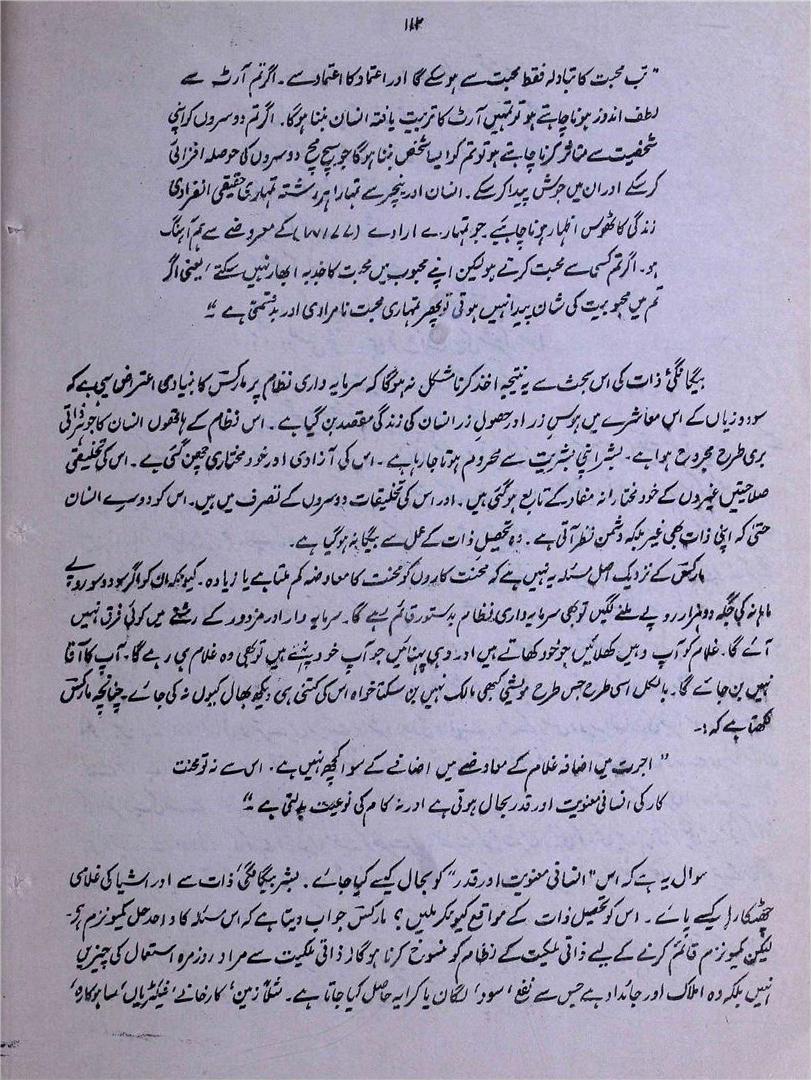 ۱۴۳
"تب محبت کا تبادلہ فقط محبت سے ہو سکے گا اور اعتماد کا اعتماد سے۔ اگر تم آرٹ سے
لطف اندوز ہونا چاہتے ہو تو تمہیں آرٹ کا تربیت یافتہ انسان بننا ہوگا۔ اگر تم دوسروں کو اپنی
شخصیت سے متاثر کرنا چاہتے ہو تو تم کو ایسا شخص بننا ہوگا جو سچ مچ دوسروں کی حوصلہ افزائی
کر سکے اور ان میں جوش پیدا کر سکے۔ انسان اور نیچر سے تمہارا ہر رشتہ تمہاری حقیقی انفرادی
زندگی کا ٹھوس اظہار ہونا چاہیئے جو تمہارے ارادے (WILL) کے معروضے سے ہم آہنگ
ہو۔ اگر تم کسی سے محبت کرتے ہو لیکن اپنے محبوب میں محبت کا جذبہ ابھار نہیں سکتے، یعنی اگر
تم میں محبوبیت کی شان پیدا نہیں ہوتی تو پھر تمہاری محبت نامرادی اور بدقسمتی ہے۔"
بیگانگیٔ ذات کی اس بحث سے یہ نتیجہ اخذ کرنا مشکل نہ ہوگا کہ سرمایہ داری نظام پر مارکس کا بنیادی اعتراض یہی ہے کہ
سود و زیاں کے اس معاشرے میں ہوسِ زر اور حصولِ زر انسان کی زندگی مقصد بن گیا ہے۔ اس نظام کے ہاتھوں انسان کا جوہر ذاتی
بری طرح مجروح ہوا ہے۔ بشر اپنی بشریت سے محروم ہوتا جا رہا ہے۔ اس کی آزادی اور خود مختاری چھن گئی ہے۔ اس کی تخلیقی
صلاحیتیں غیروں کے خود مختارانہ مفاد کے تابع ہو گئی ہیں۔ اور اس کی تخلیقات دوسروں کے تصرف میں ہیں۔ اس کو دوسرے انسان
حتیٰ کہ اپنی ذات بھی غیر بلکہ دشمن نظر آتی ہے۔ وہ تحصیل ذات کے عمل سے بیگانہ ہو گیا ہے۔
مارکس کے نزدیک اصل مسئلہ یہ نہیں ہے کہ محنت کاروں کو محنت کا معاوضہ کم ملتا ہے یا زیادہ۔ کیونکہ ان کو اگر سو دو سو روپے
ماہانہ کی جگہ دو ہزار روپے ملنے لگیں تو بھی سرمایہ داری نظام بدستور قائم رہے گا۔ سرمایہ دار اور مزدور کے رشتے میں کوئی فرق نہیں
آئے گا۔ غلام کو آپ وہیں کھلائیں جو خود کھاتے ہیں اور وہی پہنائیں جو آپ خود پہنتے ہیں تو بھی وہ غلام ہی رہے گا۔ آپ کا آقا
نہیں بن جائے گا۔ بالکل اسی طرح جس طرح مویشی کبھی مالک نہیں بن سکتا خواہ اس کی کتنی ہی دیکھ بھال کیوں نہ کی جائے چنانچہ مارکس
لکھتا ہے کہ:۔
"اجرت میں اضافہ غلام کے معاوضے میں اضافے کے سوا کچھ نہیں ہے۔ اس سے نہ تو محنت
کار کی انسانی معنویت اور قدر بحال ہوتی ہے اور نہ کام کی نوعیت بدلتی ہے۔"
سوال یہ ہے کہ اس "انسانی معنویت اور قدر" کو بحال کیسے کیا جائے۔ بشر بیگانگیٔ ذات سے اور اشیا کی غلامی
چھٹکارا کیسے پائے۔ اس کو تحصیل ذات کے مواقع کیونکر ملیں؟ مارکس جواب دیتا ہے کہ اس مسئلہ کا واحد حل کمیونزم ہے۔
لیکن کمیونزم قائم کرنے کے لیے ذاتی ملکیت کے نظام کو منسوخ کرنا ہوگا (ذاتی ملکیت سے مراد روزمرہ استعمال کی چیزیں
نہیں بلکہ وہ املاک اور جائداد ہے جس سے نفع، سود، لگان یا کرایہ حاصل کیا جاتا ہے۔ مثلاً زمین، کارخانے، فیکٹریاں، ساہوکارہ،